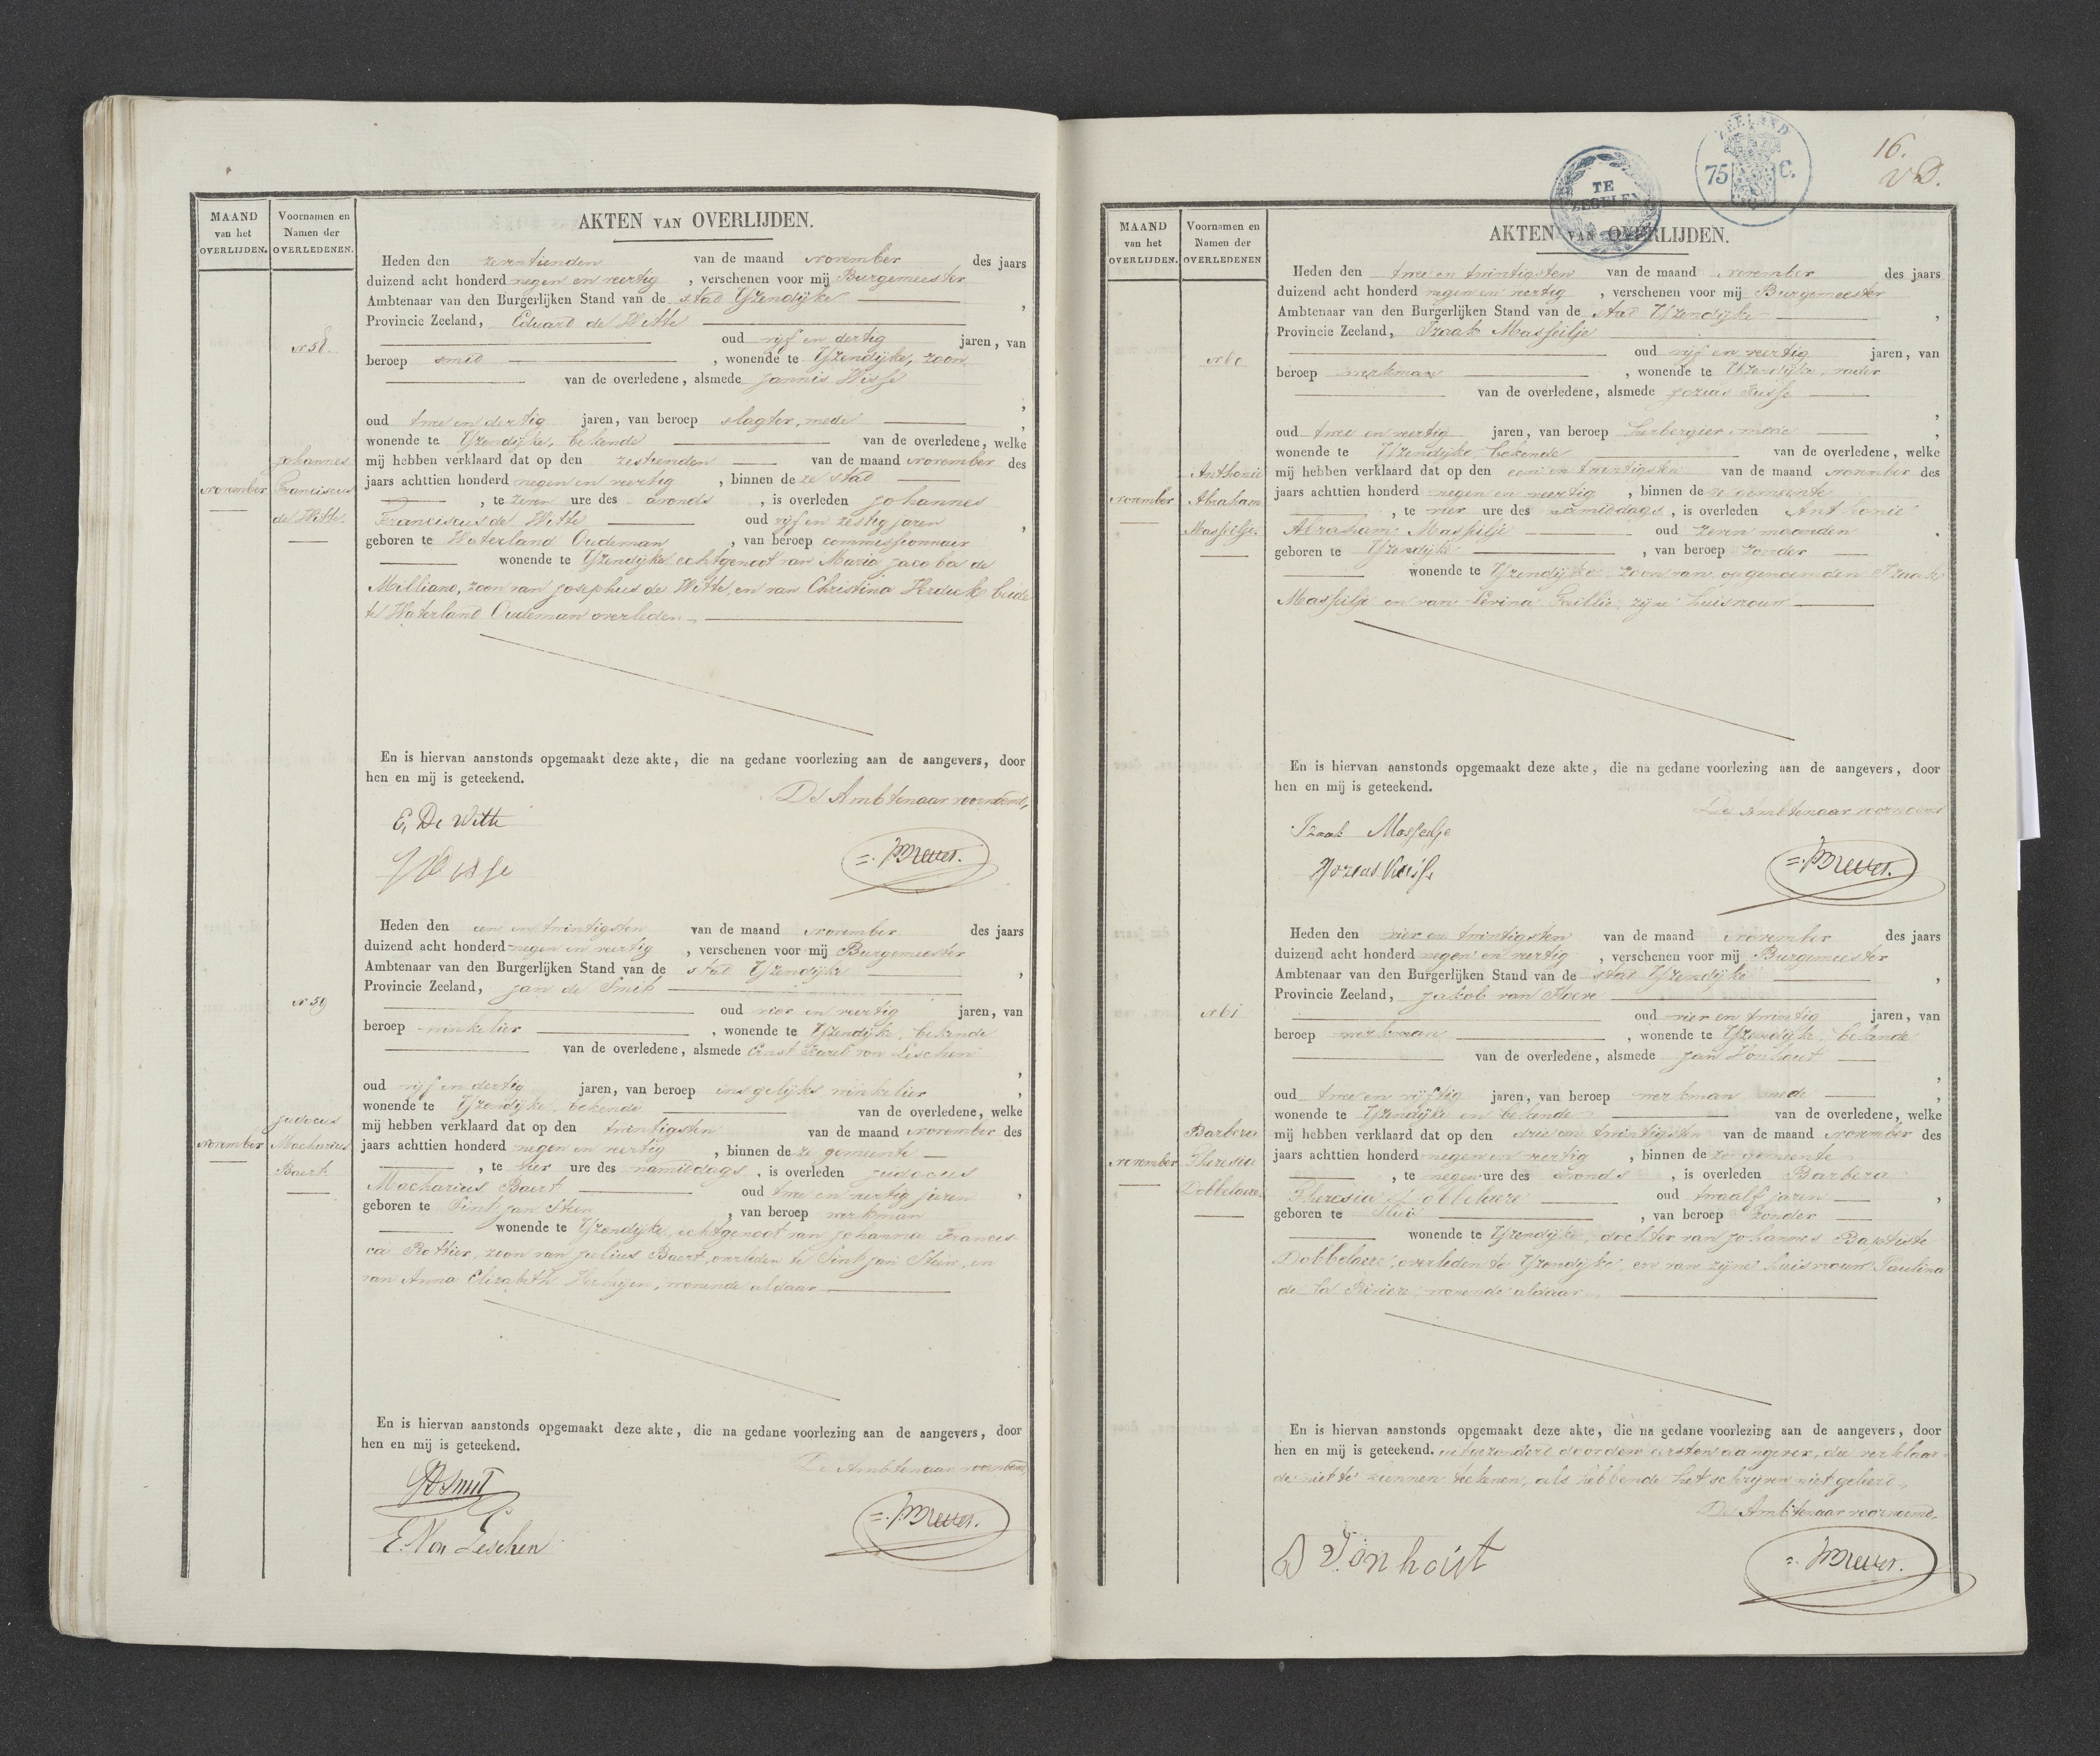 MAAND
van het
OVERLIJDEN.
Voornamen en
Namen der
OVERLEDENEN.
AKTEN VAN OVERLIJDEN.
No 58.
November
Johannes
Franciscus
de Witte.
Heden den zeventienden van de maand November des jaars
duizend acht honderd negen en veertig, verschenen voor mij Burgemeester
Ambtenaar van den Burgerlijken Stand van de stad Yzendijke,
Provincie Zeeland, Eduard de Witte
oud vijf en dertig jaren, van
beroep smid, wonende te Yzendijke, zoon
van de overledene, alsmede Jannis Wisse,
oud twee en dertig jaren, van beroep slagter, mede,
wonende te Yzendijke, bekende van de overledene, welke
mij hebben verklaard dat op den zestienden van de maand November des
jaars achttien honderd negen en veertig, binnen deze stad
, te zeven ure des avonds, is overleden Johannes
Franciscus de Witte oud vijf en zestig jaren,
geboren te Waterland Oudeman, van beroep commissionnair
wonende te Yzendijke echtgenoot van Maria Jacoba de
Milliano, zoon van Josephus de Witte, en van Christina Verduck beide
te Waterland Oudeman overleden.
En is hiervan aanstonds opgemaakt deze akte, die na gedane voorlezing aan de aangevers, door
hen en mij is geteekend.
De Ambtenaar voornoemd,
E, De Witte
J Wisse
No 59
November
Judocus
Macharius
Baert.
Heden den een en twintigsten van de maand November des jaars
duizend acht honderd negen en veertig, verschenen voor mij Burgemeester
Ambtenaar van den Burgerlijken Stand van de stad Yzendijke,
Provincie Zeeland, Jan de Smit
oud vier en veertig jaren, van
beroep winkelier, wonende te Yzendijke, bekende
van de overledene, alsmede Ernst Karel von Leschen,
oud vijf en dertig jaren, van beroep insgelijks winkelier,
wonende te Yzendijke, bekende van de overledene, welke
mij hebben verklaard dat op den twintigsten van de maand November des
jaars achttien honderd negen en veertig, binnen deze gemeente
, te vier ure des namiddags, is overleden Judocus
Macharius Baert oud twee en veertig jaren,
geboren te Sint Jan Steen, van beroep werkman
wonende te Yzendijke, echtgenoot van Johanna Francis-
ca Rottier, zoon van Julius Baert, overleden te Sint Jan Steen, en
van Anna Elizabeth, wonende aldaar
En is hiervan aanstonds opgemaakt deze akte, die na gedane voorlezing aan de aangevers, door
hen en mij is geteekend.
De Ambtenaar voornoemd,
JD Smit
E. Von Leschen
ZEELAND
75 C.
TE
ZEGELEN
16.
MAAND
van het
OVERLIJDEN.
Voornamen en
Namen der
OVERLEDENEN
AKTEN VAN OVERLIJDEN.
No 60
November
Anthonie
Abraham
Masseilje.
Heden den twee en twintigsten van de maand November des jaars
duizend acht honderd negen en veertig, verschenen voor mij Burgemeester
Ambtenaar van den Burgerlijken Stand van de stad Yzendijke,
Provincie Zeeland, Izaak Masseilje
oud vijf en veertig jaren, van
beroep werkman, wonende te Yzendijke, vader
van de overledene, alsmede Jozias,
oud twee en veertig jaren, van beroep herbergier, mede,
wonende te Yzendijke, bekende van de overledene, welke
mij hebben verklaard dat op den een en twintigsten van de maand November des
jaars achttien honderd negen en veertig, binnen deze gemeente
, te vier ure des namiddags, is overleden Anthonie
Abraham Masseilje oud zeven maanden.
geboren te Yzendijke, van beroep zonder
wonende te Yzendijke zoon van opgenoemden Izaak
Masseilje en van Levina Faillie, zijne huisvrouw
En is hiervan aanstonds opgemaakt deze akte, die na gedane voorlezing aan de aangevers, door
hen en mij is geteekend.
De Ambtenaar voornoemd
Izaak Masseilje
Jozias
No 61
November
Barbera
Theresia
Dobbelaere.
Heden den vier en twintigsten van de maand November des jaars
duizend acht honderd negen en veertig, verschenen voor mij Burgemeester
Ambtenaar van den Burgerlijken Stand van de stad Yzendijke,
Provincie Zeeland, Jakob van
oud vier en twintig jaren, van
beroep werkman, wonende te Yzendijke, bekende
van de overledene, alsmede Jan Vonhout,
oud twee en vijftig jaren, van beroep werkman mede,
wonende te Yzendijke en bekende van de overledene, welke
mij hebben verklaard dat op den drie en twintigsten van de maand November des
jaars achttien honderd negen en veertig, binnen deze gemeente
, te negen ure des avonds, is overleden Barbera
Theresia Dobbelaere oud twaalf jaren,
geboren te Sluis, van beroep zonder
wonende te Yzendijke, dochter van Johannes Baptiste
Dobbelaere, overleden te Yzendijke, en van zijne huisvrouw Paulina
de la Riviere, wonende aldaar
En is hiervan aanstonds opgemaakt deze akte, die na gedane voorlezing aan de aangevers, door
hen en mij is geteekend. uitgezonderd door den eersten aangever, die verklaar-
de niet te kunnen teekenen, als hebbende het schrijven niet geleerd.
De Ambtenaar voornoemd.
Vonhout